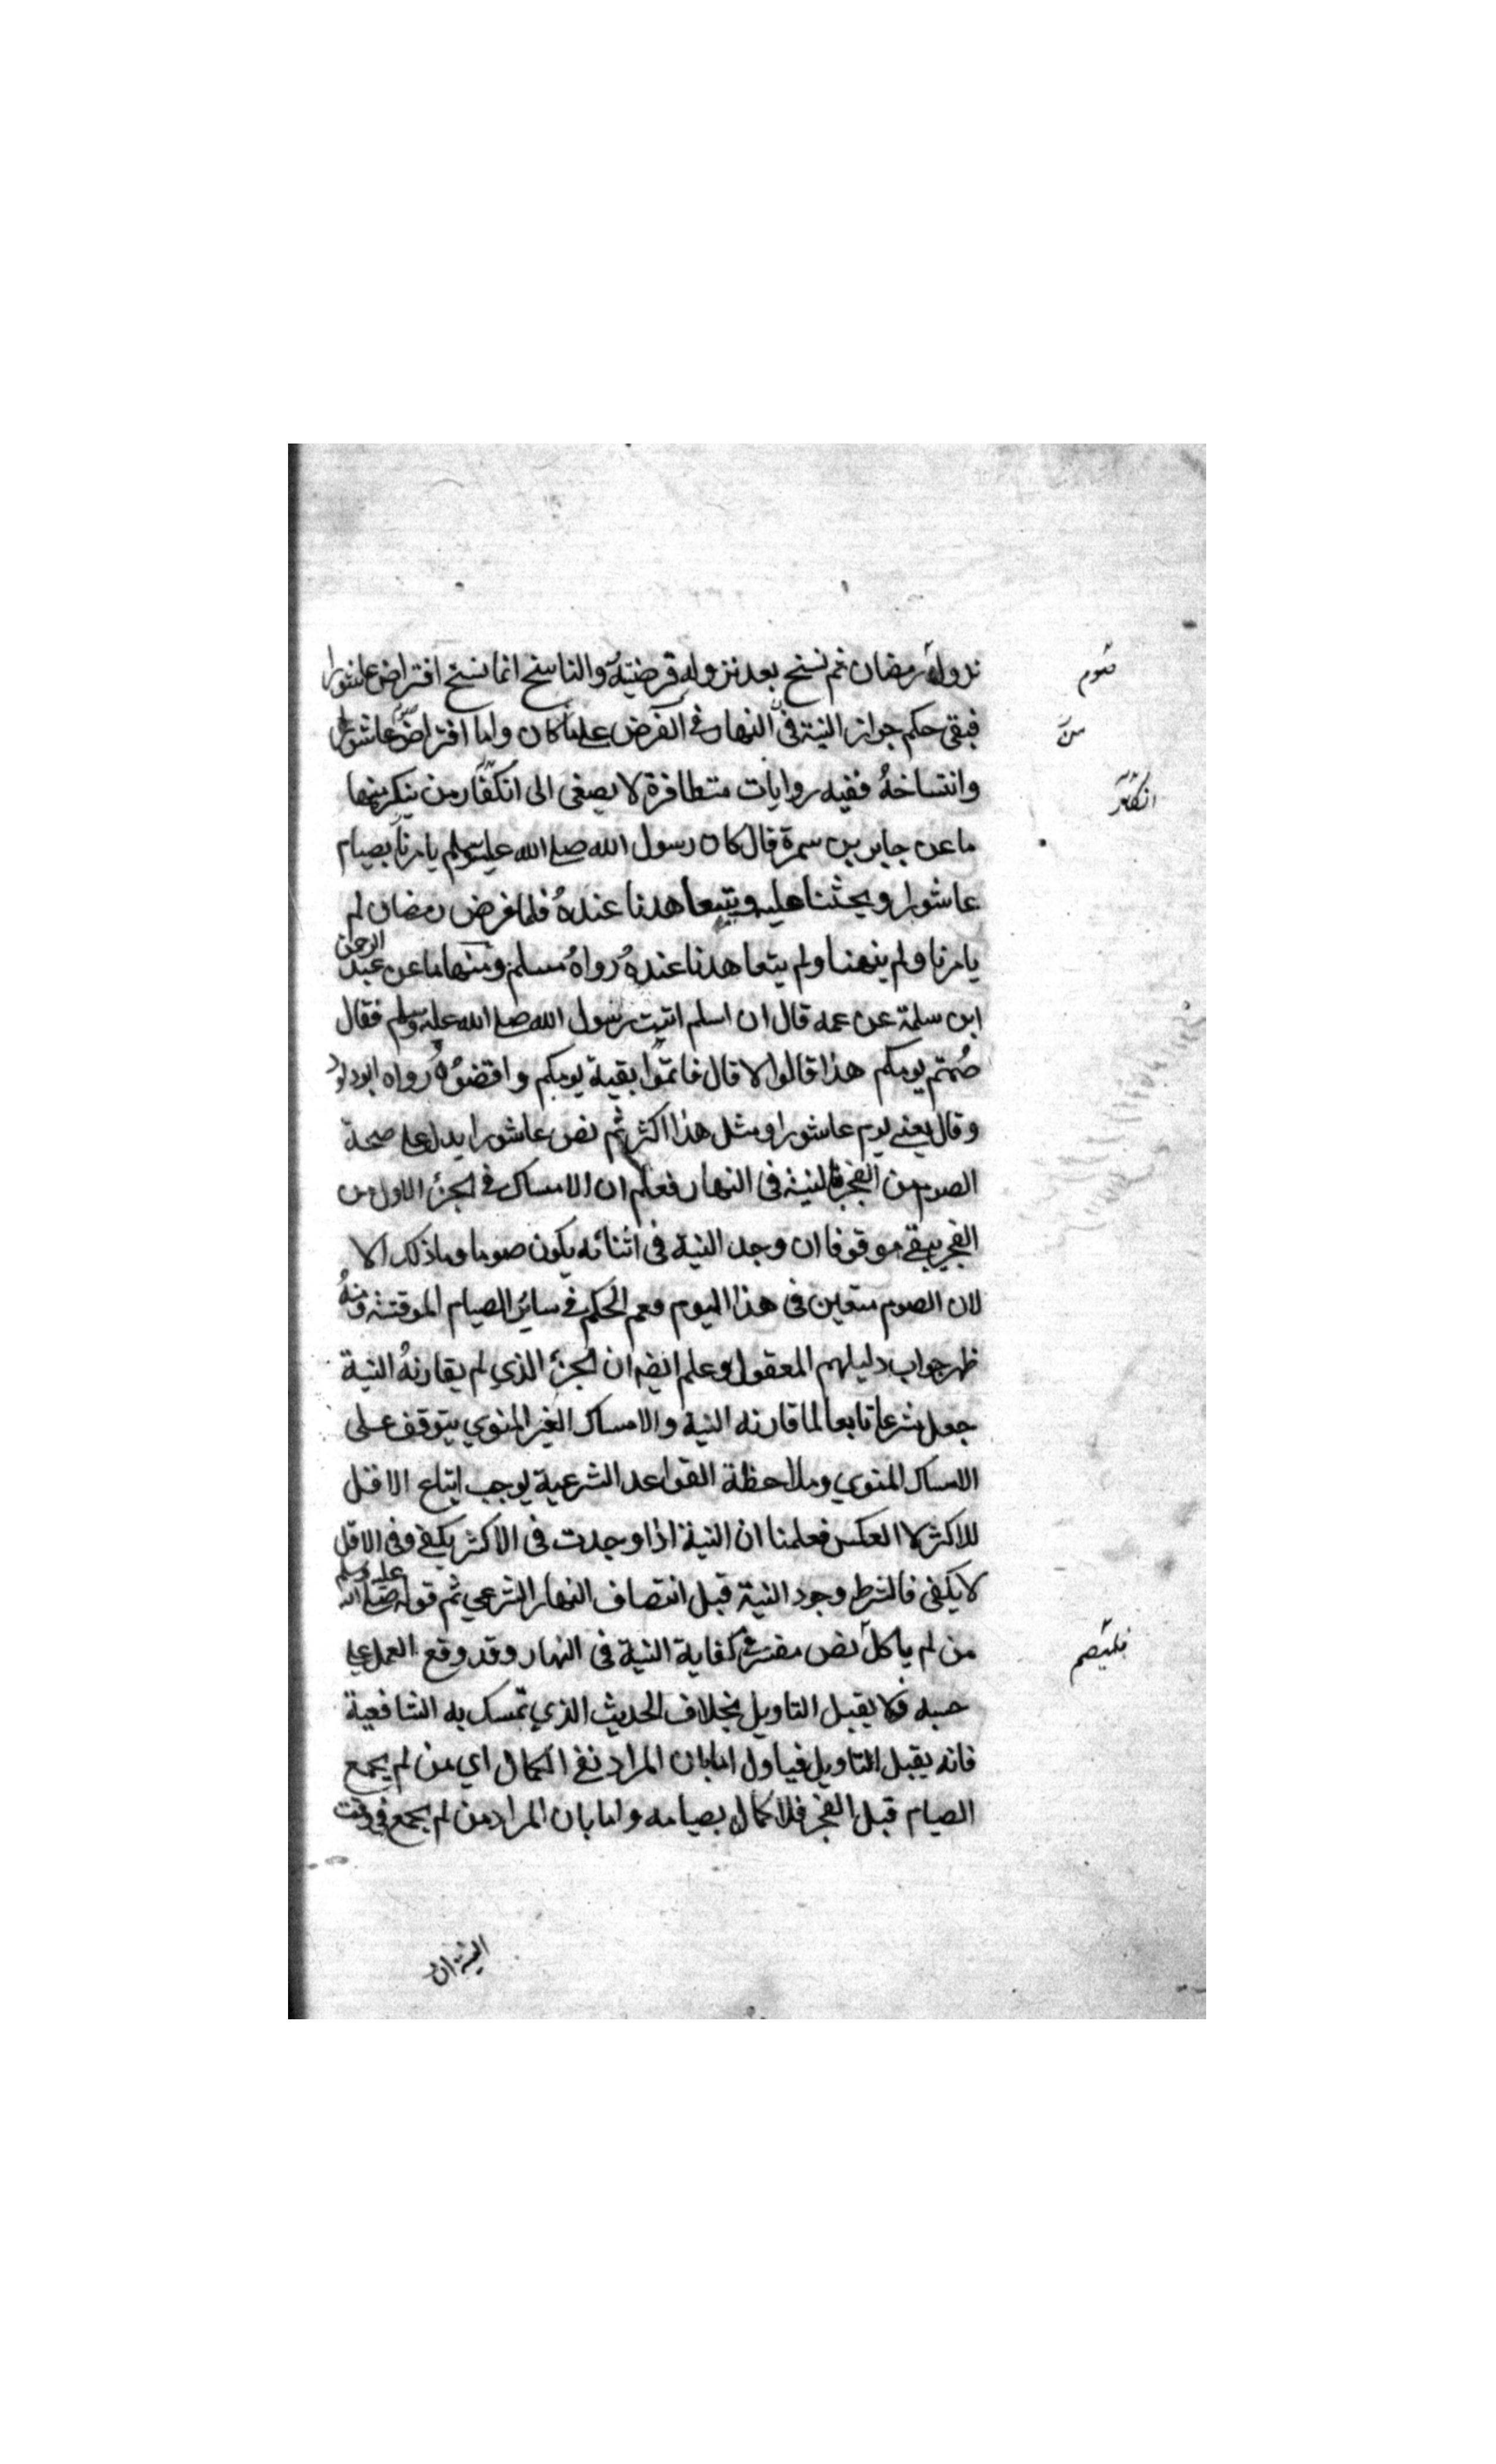 نزول رمضان ثم نسخ بعد نزوله فرضيته والناسخ انما نسخ افتراض عاشورا
صوم
فبقى حكم جواز النية فى النهار فى الفرض على ما كان واما افتراض صوم عاشورا
وانتساخهُ ففيه روايات متظافرة لا يصغى الى انكار من ينكر منها
انكار
ما عن جابر بن سمرة قال كان رسول الله صلى الله عليه وسلم يامرنا بصيام
عاشورا ويحثنا عليه ويتعاهدنا عندهُ فلما فرض رمضان لم
يامرنا ولم ينهنا ولم يتعاهدنا عندهُ رواهُ مسلم ومنها ما عن عبد الرحمن
ابن سلمة عن عمه قال ان اسلم اتيت رسول الله صلى الله عليه وسلم فقال
صُمتم يومكم هذا قالوا لا قال فاتموا بقية يومكم واقضوُه رواه ابوداود
وقال يعنى يوم عاشورا ومثل هذا اكثر ثم نص عاشورا يدل على صحة
الصوم من الفجر بالنية فى النهار فعلم ان الامساك فى الجزء الاول من
الفجر يبقى موقوفا ان وجد النية فى اثنائه يكون صوما وما ذلك الا
لان الصوم متعين فى هذا اليوم فعم الحكم فى سائر الصيام الموقتة ومنهُ
ظهر جواب دليلهم المعقول وعلم ايضه ان الجزء الذي لم يقارنهُ النية
جعل شرعا تابعا لما قارنه النية والامساك الغير المنوي يتوقف على
الامساك المنوي وملاحظة القواعد الشرعية يوجب اتباع الاقل
للاكثر لا العكس فعلمنا ان النية اذا وجدت فى الاكثر يكفى وفى الاقل
لا يكفى فالشرط وجود النية قبل انتصاف النهار الشرعي ثم قوله صلى الله عليه وسلم
من لم ياكل نص مفسر فى كفاية النية فى النهار وقد وقع العمل على
فليصم
حسبه فلا يقبل التاويل بخلاف الحديث الذي تمسك به الشافعية
فانه يقبل التاويل فياول اما بان المراد نفى الكمال اي من لم يجمع
الصيام قبل الفجر فلا كمال بصيامه واما بان المراد من لم يجمع فى وقت